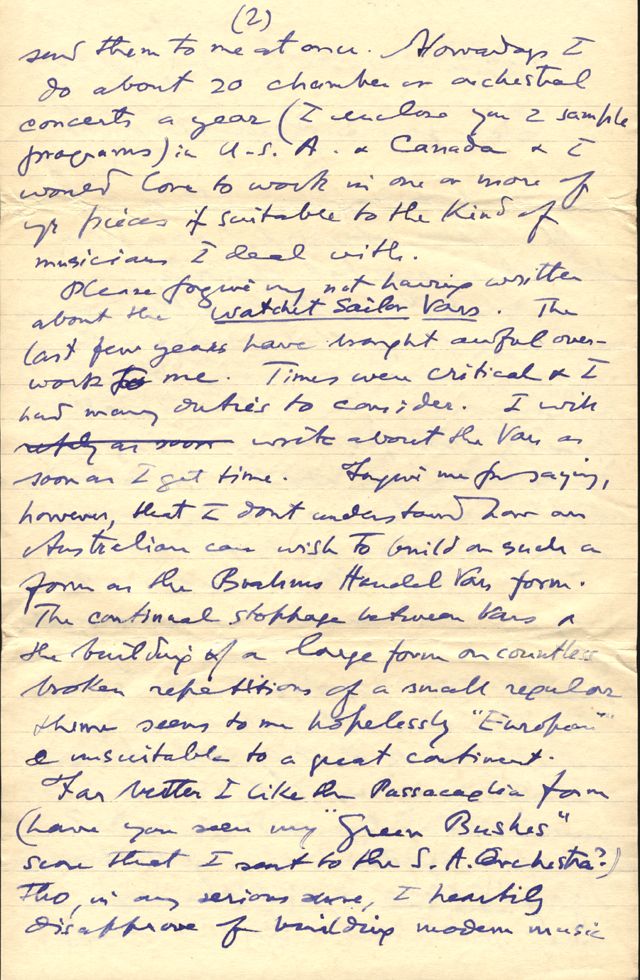 (2)
send them to me at once. Nowadays I
do about 20 chamber or orchestral
concerts a year (I enclose you 2 sample
programs) in U.S.A. & Canada & I
would love to work in one or more of
yr pieces if suitable to the kind of
musicians I deal with.
Please forgive my not having written
about the Watchet Sailor Vars. The
last few years have brought awful over-
work to me. Times were critical & I
had many duties to consider. I will
write about the Vars as
soon as I get time. Forgive me for saying,
however, that I dont understand how an
Australian can wish to build on such a
form as the Brahms Handel Vars form.
The continual stoppage between Vars &
the building of a large form on countless
broken repetitions of a small regular
theme seems to me hopelessly "European"
& unsuitable to a great continent.
Far better I like the Passacaglia form
(have you seen my "Green Bushes"
score that I sent to the S.A. Orchestra?)
Tho, in any serious sense, I heartily
disapprove of building modern music